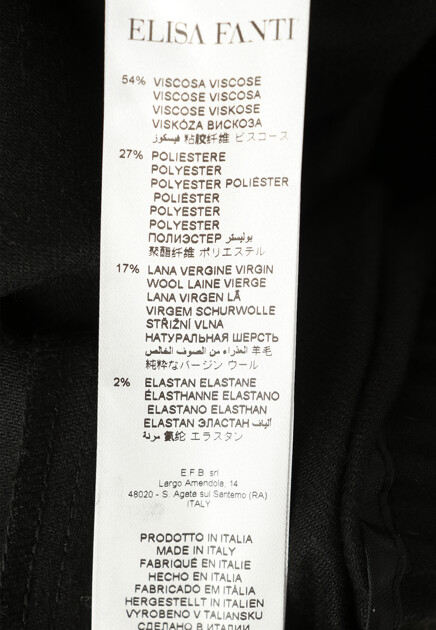 ELISA FANTI
54% VISCOSA VISCOSE
VISCOSE VISCOSA
VISCOSE VISKOSE
VISKÓZA ВИСКОЗА
فيسكوز 粘胶纤维 ビスコース
27% POLIESTERE
POLYESTER
POLYESTER POLIÉSTER
POLIÉSTER
POLYESTER
POLYESTER
ПОЛИЭСТЕР بوليستر
聚酯纤维 ポリエステル
17% LANA VERGINE VIRGIN
WOOL LAINE VIERGE
LANA VIRGEN LÃ
VIRGEM SCHURWOLLE
STŘIŽNÍ VLNA
НАТУРАЛЬНАЯ ШЕРСТЬ
العذراء من الصوف الخالص 羊毛
純粋なバージン ウール
2% ELASTAN ELASTANE
ÉLASTHANNE ELASTANO
ELASTANO ELASTHAN
ELASTAN ЭЛАСТАН ألياف
مرنة 氨纶 エラスタン
E.F.B. srl
Largo Amendola, 14
48020 - S. Agata sul Santerno (RA)
ITALY
PRODOTTO IN ITALIA
MADE IN ITALY
FABRIQUÉ EN ITALIE
HECHO EN ITALIA
FABRICADO EM ITÁLIA
HERGESTELLT IN ITALIEN
VYROBENO V TALIANSKU
СДЕЛАНО В ИТАЛИИ